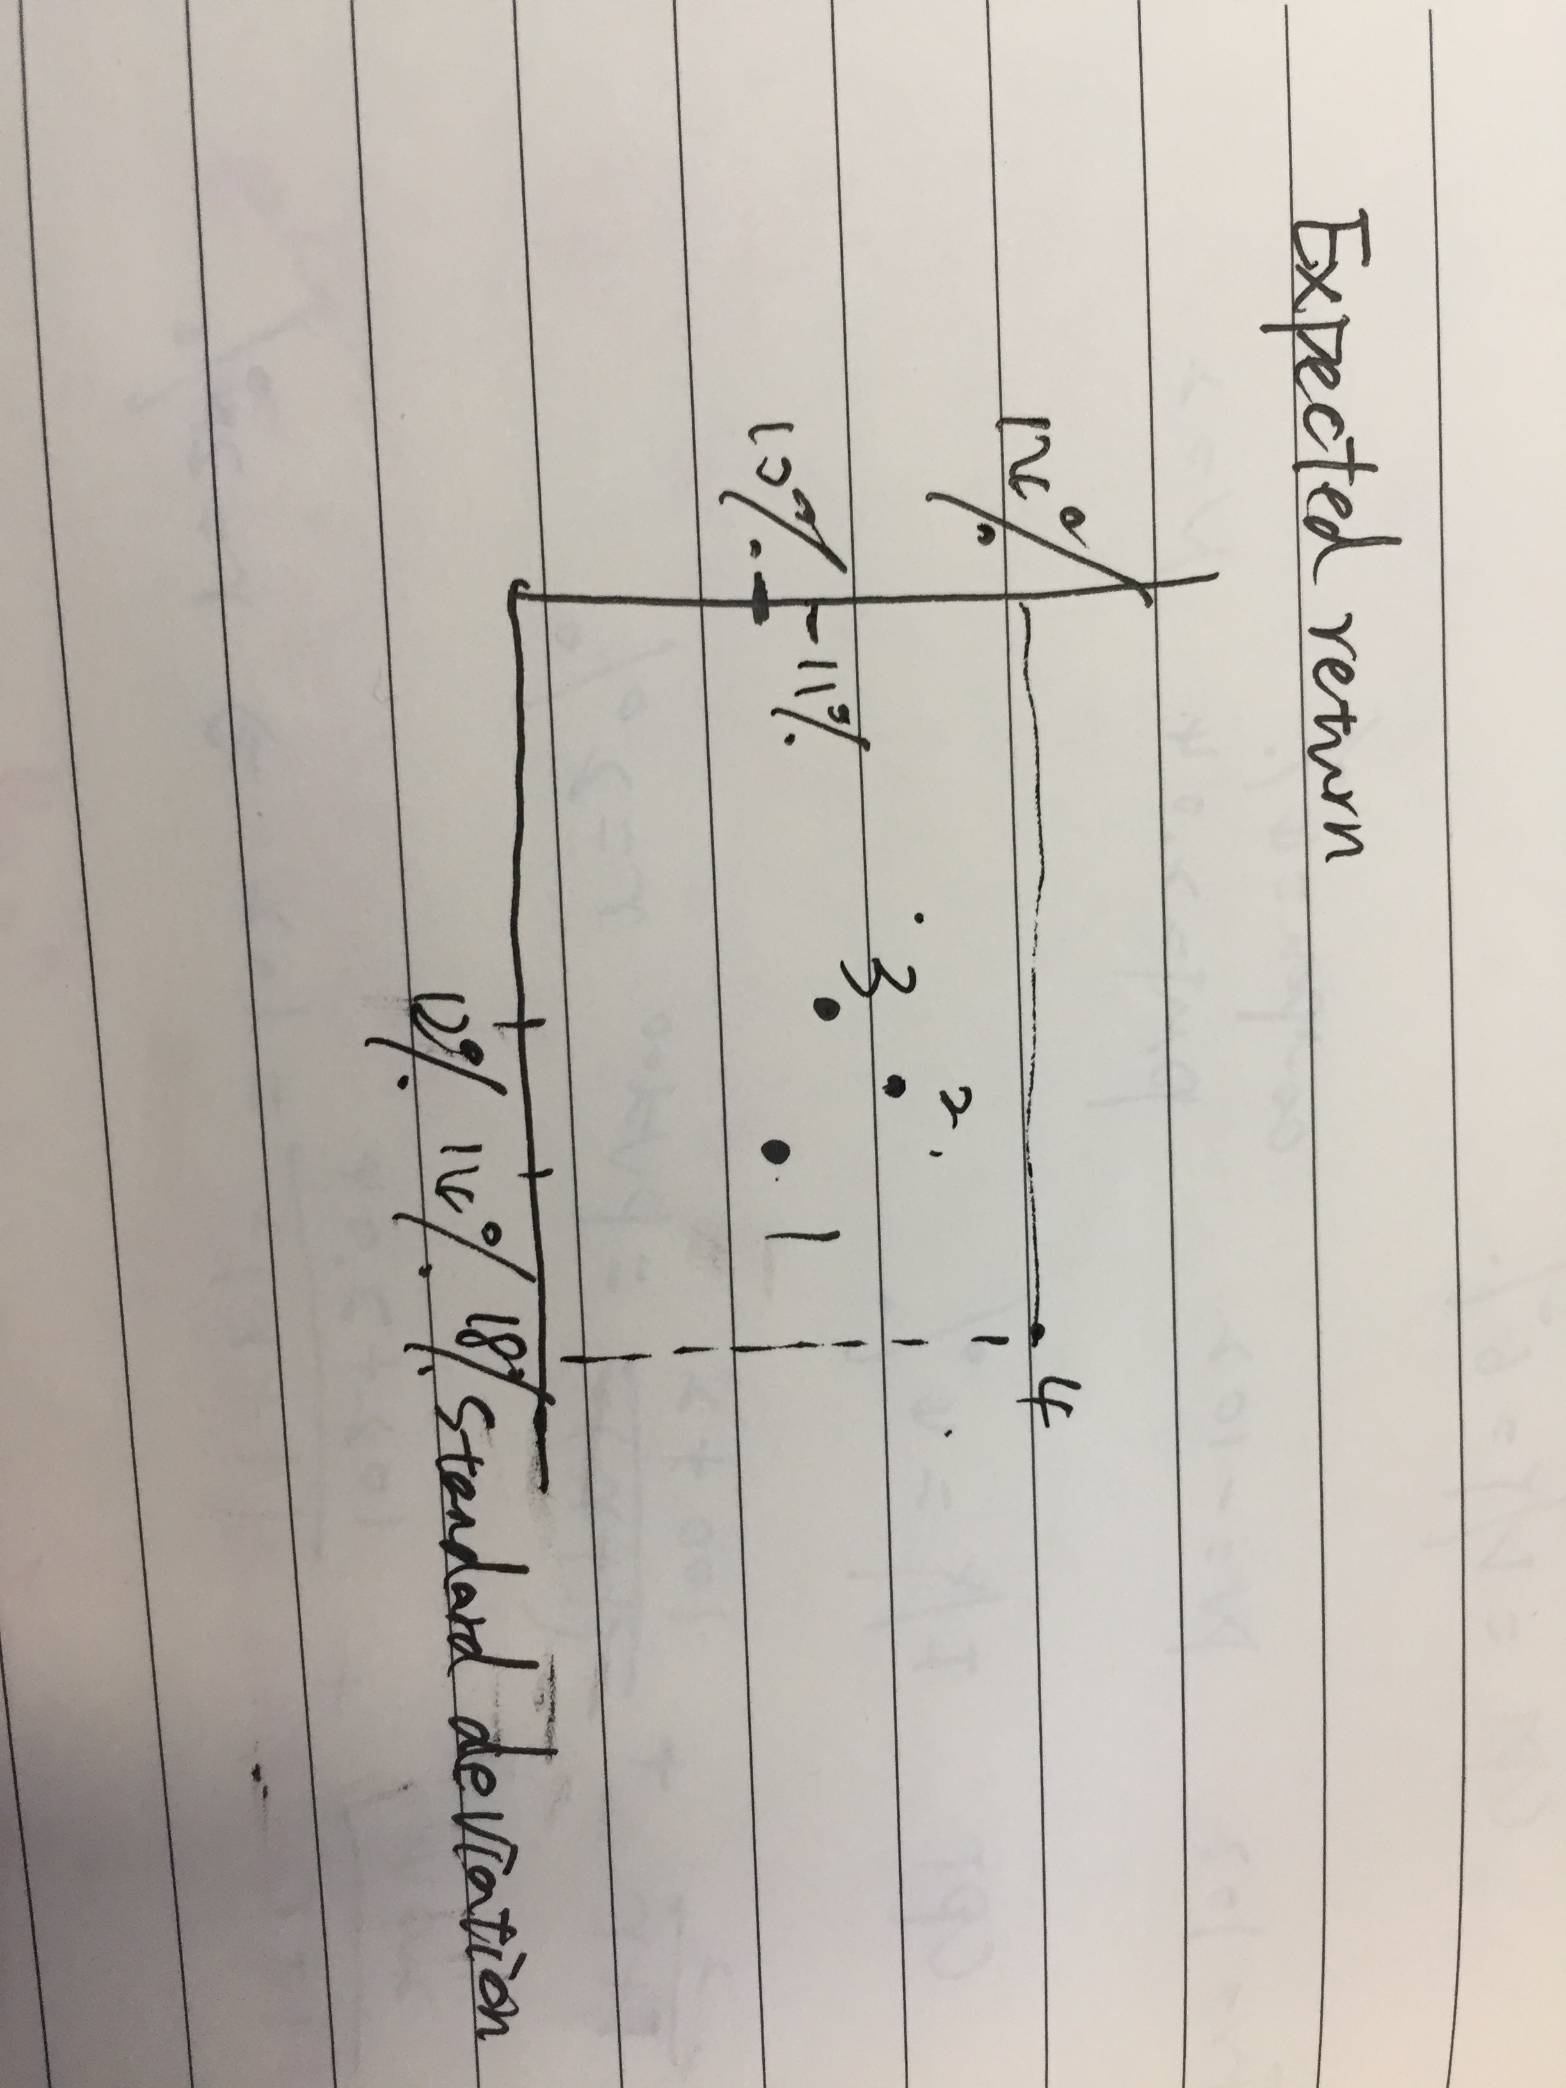 Expected return
4
2
3
11%
10%
1
18% Standard deviation